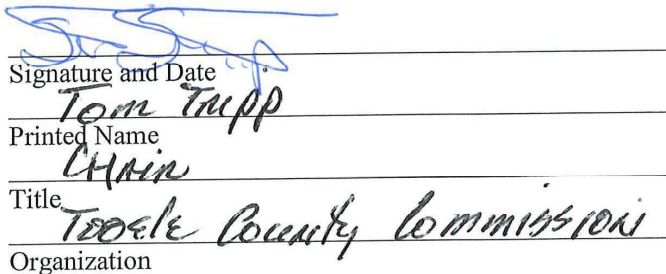 Signature and Date
Tom Tripp
Printed Name
CHAIR
Title
Tooele County Commission
Organization